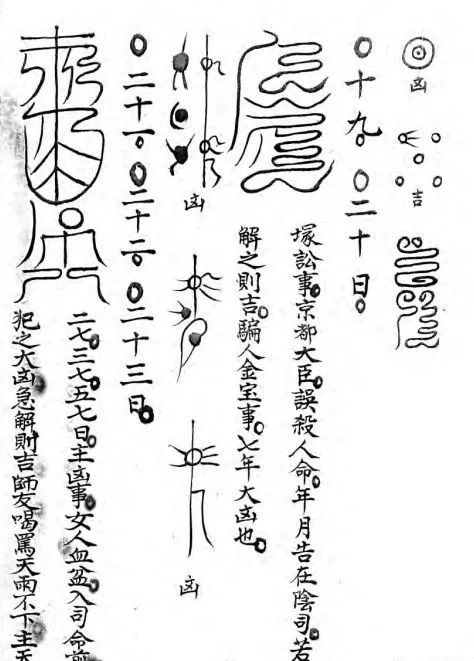 凶
吉
○十九。○二十日。
塚訟事。京都大臣。誤殺人命。年月告在陰司。若
解之則吉。騙人金宝事。七年大凶也。
凶
凶
○二十一。○二十二。○二十三日。
二七。三七。五七日。主凶事。女人血盆入司命前
犯之大凶。急解則吉。師友喝罵天雨不下主天